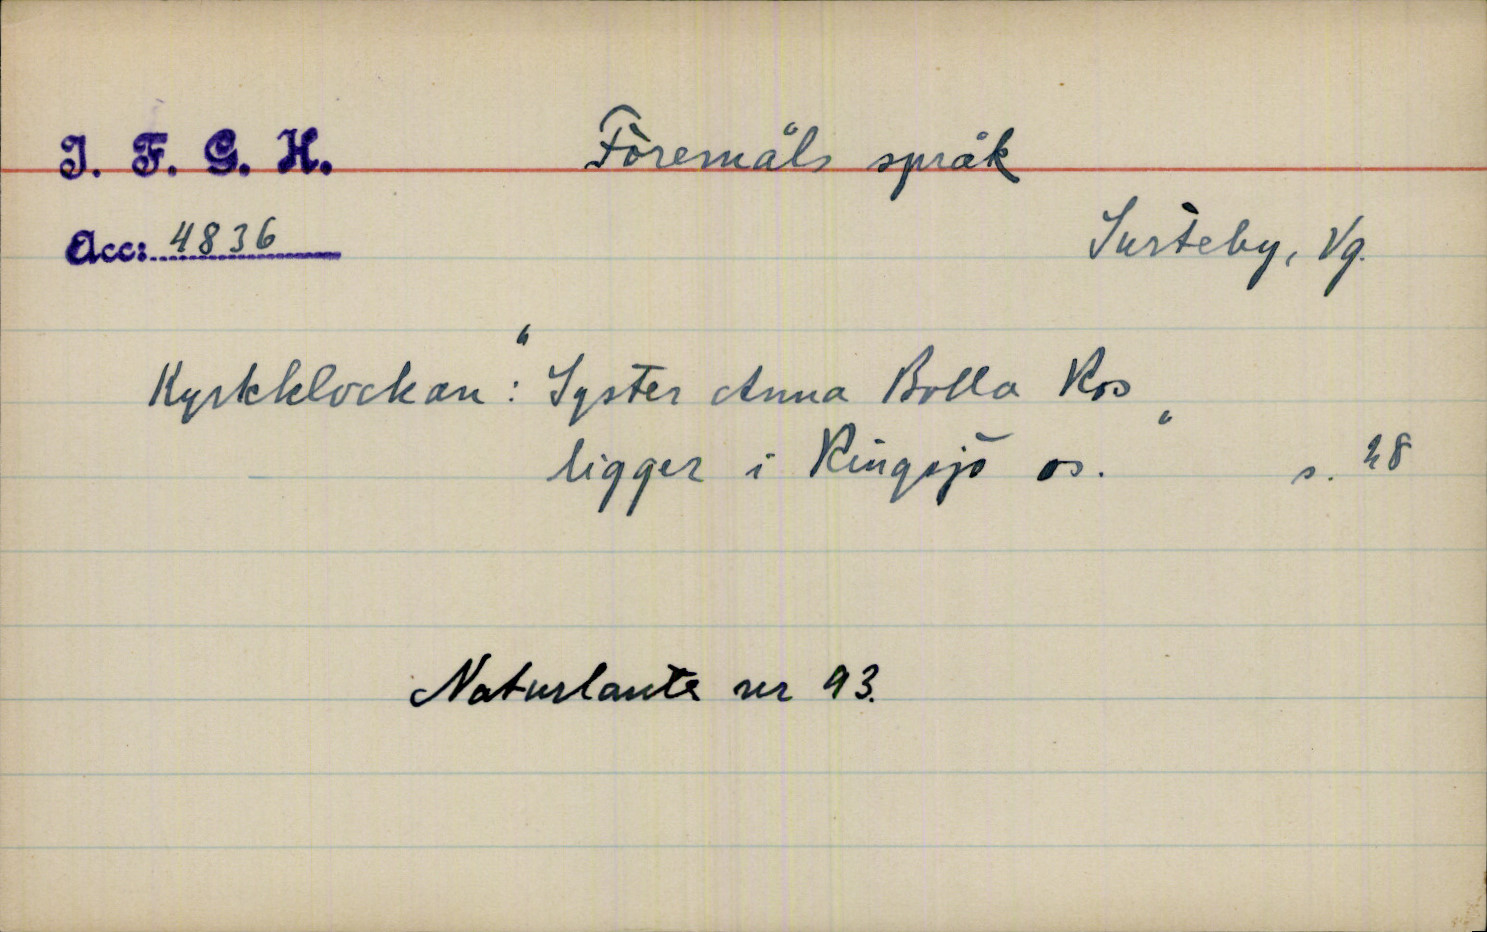 I. F. G. H.
Föremåls språk
Acc: 4836
Surteby, Vg.
Kyrkklockan: "Syster Anna Bolla Ros
ligger i Ringsjö os." s. 28
Naturlaute nr 93.